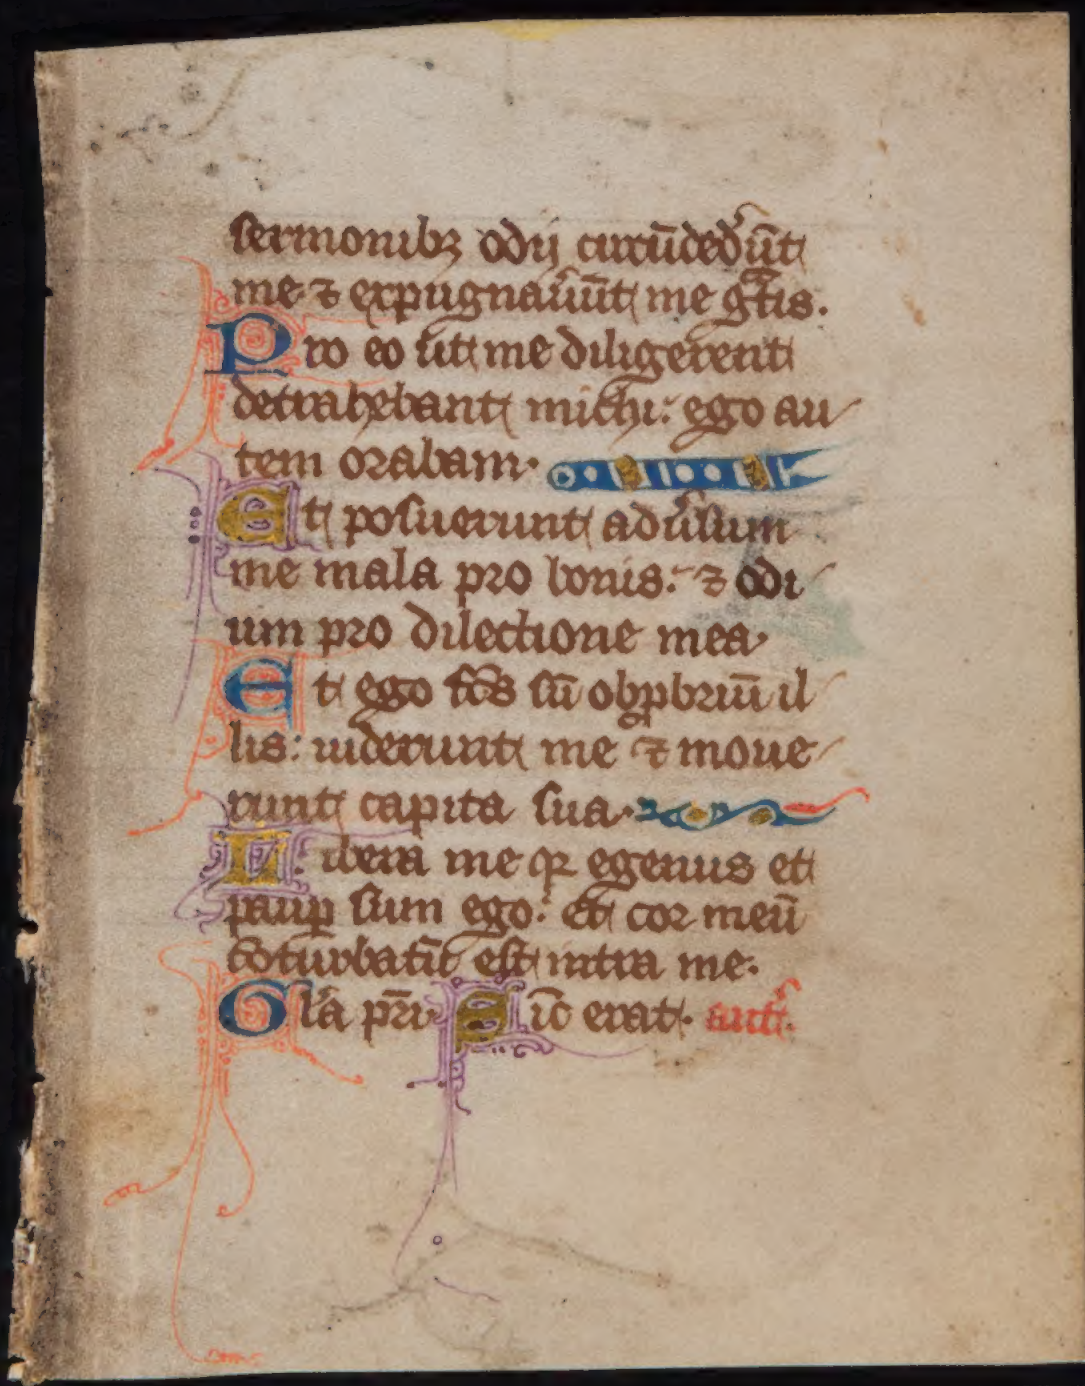 sermonibꝫ odij circūdedeᷣūt
me ⁊ expugnauᷣūt me gᷓtis.
Pro eo ut me diligerent
detrahebant michi: ego au
tem orabam.
Et posuerunt aduᷣsum
me mala pro bonis: ⁊ odi
um pro dilectione mea.
Et ego fc̄s sū obꝓbriū il
lis: uiderunt me ⁊ moue
runt capita sua.
Libera me qꝛ egenus et
pauꝑ sum ego: et cor meū
ꝯturbatū est intra me.
Glᷓia pr̄i Sic̄ erat. ant̄.